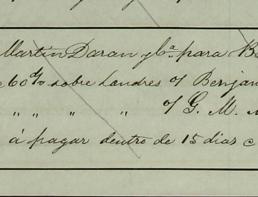 Martin Daran y Ca. para B
60 d/v sobre Londres o/ Benjam
" " " " o/ G. M.
á pagar dentro de 15 dias c